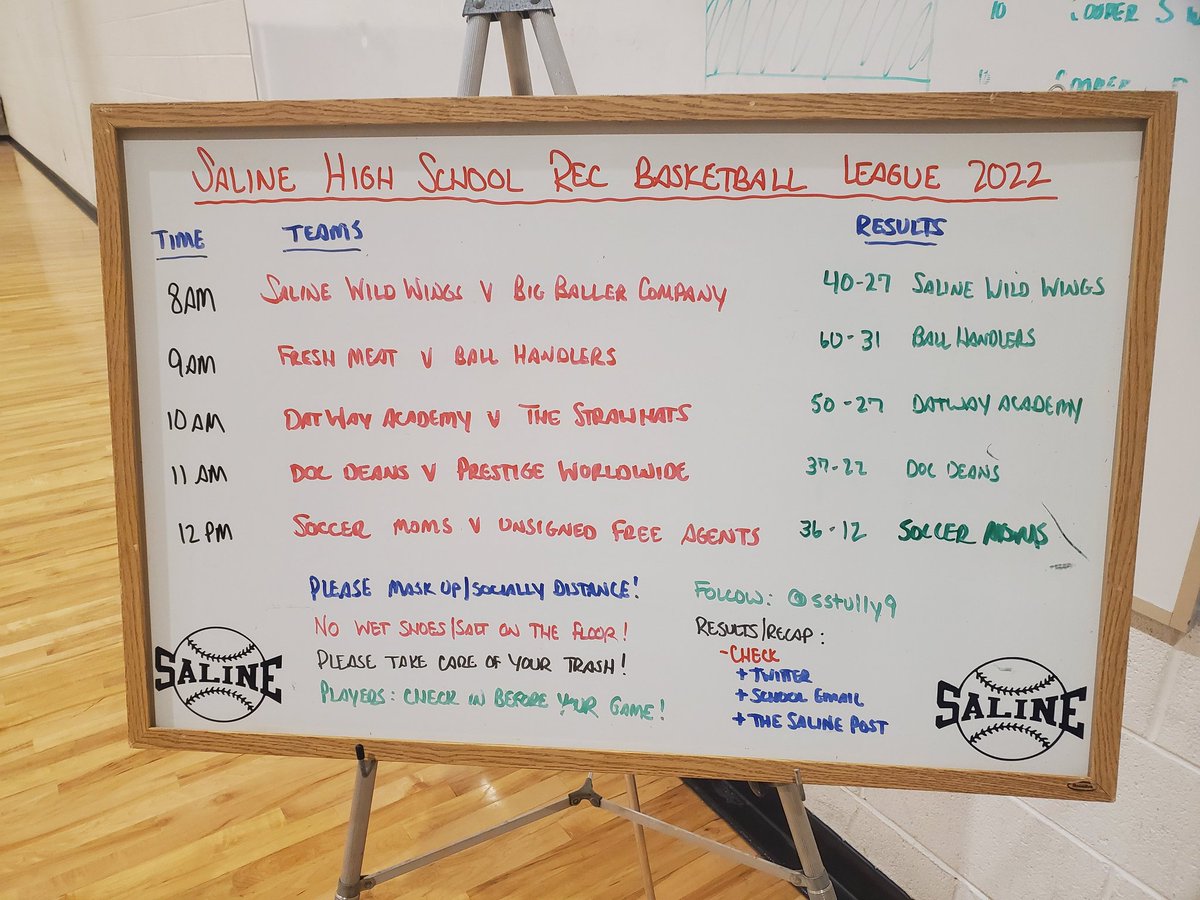 10 COOPER S
10
SALINE HIGH SCHOOL REC BASKETBALL LEAGUE 2022
TIME TEAMS RESULTS
8AM SALINE WILD WINGS V BIG BALLER COMPANY 40-27 SALINE WILD WINGS
9AM FRESH MEAT V BALL HANDLERS 60-31 BALL HANDLERS
10AM DATWAY ACADEMY V THE STRAWHATS 50-27 DATWAY ACADEMY
11AM DOC DEANS V PRESTIGE WORLDWIDE 37-22 DOC DEANS
12PM SOCCER MOMS V UNSIGNED FREE AGENTS 36-12 SOCCER MOMS
PLEASE MASK UP/SOCIALLY DISTANCE!
NO WET SHOES/SALT ON THE FLOOR!
PLEASE TAKE CARE OF YOUR TRASH!
PLAYERS: CHECK IN BEFORE YOUR GAME!
FOLLOW: @sstully9
RESULTS/RECAP:
-CHECK
+TWITTER
+SCHOOL EMAIL
+THE SALINE POST
SALINE
SALINE